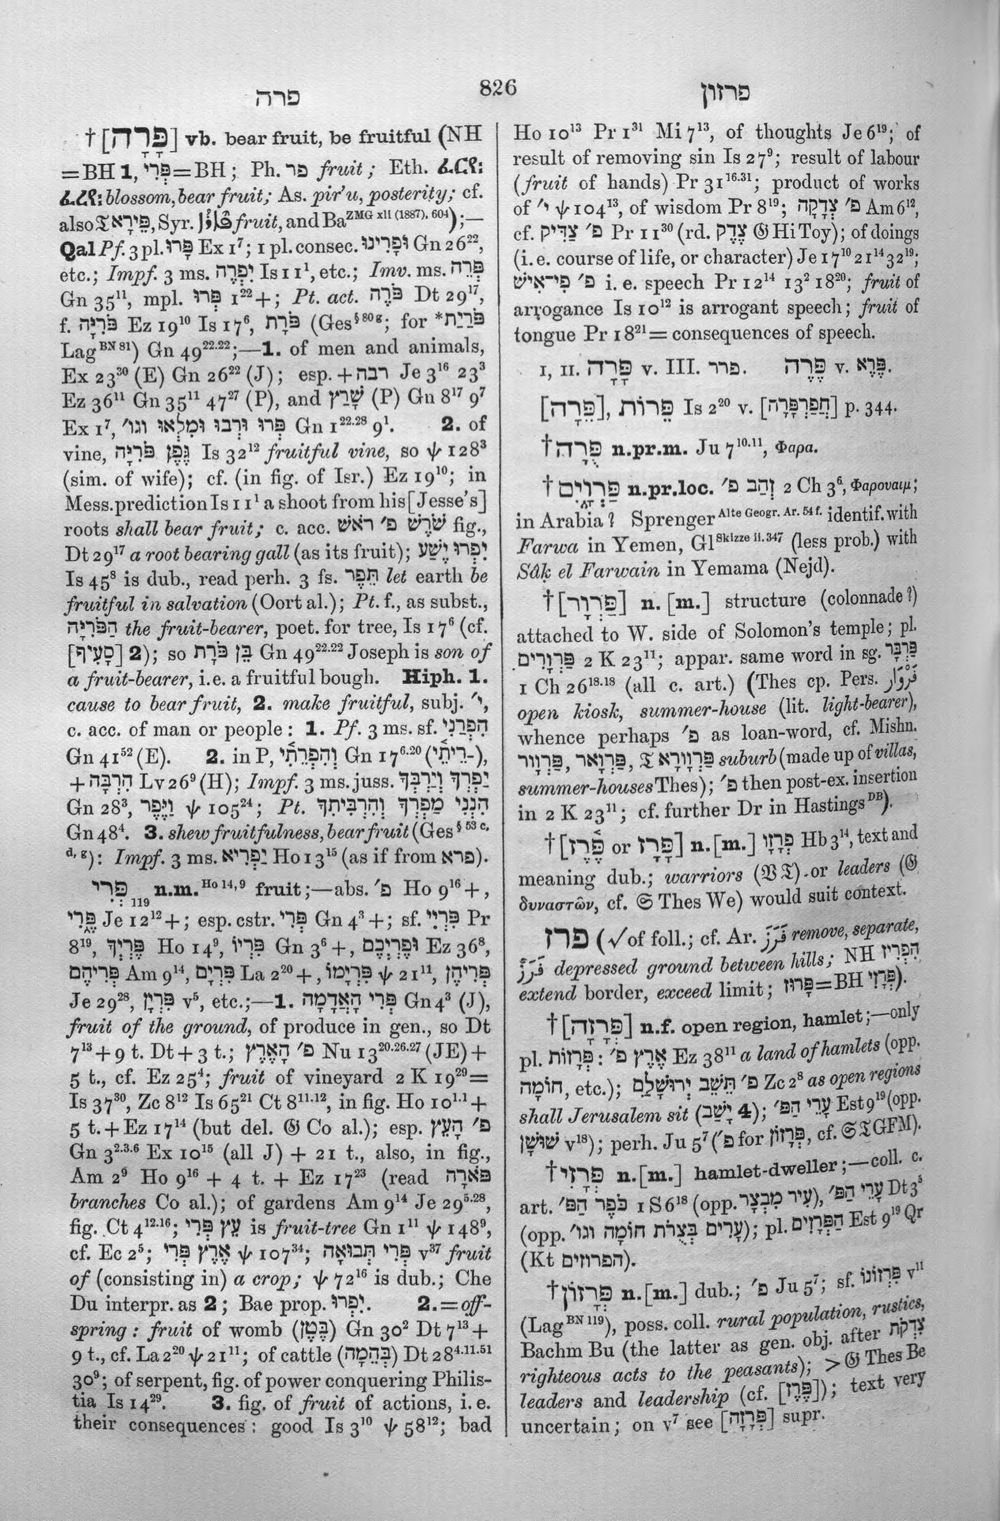 פרה
826
פרזון
† [פָּרָה] vb. bear fruit, be fruitful (NH
= BH 1, פְּרִי = BH; Ph. פר fruit; Eth.
blossom, bear fruit; As. pir'u, posterity; cf.
also 𝔗 פֵּירָא, Syr. fruit, and Ba ZMG xli (1887), 604);—
Qal Pf. 3 pl. פָּרוּ Ex 1⁷; 1 pl. consec. וּפָרִינוּ Gn 26²²,
etc.; Impf. 3 ms. יִפְרֶה Is 11¹, etc.; Imv. ms. פְּרֵה
Gn 35¹¹, mpl. פְּרוּ 1²²+; Pt. act. פֹּרֶה Dt 29¹⁷,
f. פֹּרִיָּה Ez 19¹⁰ Is 17⁶, פֹּרָת (Ges § 80 g; for *פֹּרַיַת
Lag BN 81) Gn 49²²·²²;—1. of men and animals,
Ex 23³⁰ (E) Gn 26²² (J); esp. + רבה Je 3¹⁶ 23³
Ez 36¹¹ Gn 35¹¹ 47²⁷ (P), and שָׁרַץ (P) Gn 8¹⁷ 9⁷
Ex 1⁷, פְּרוּ וּרְבוּ וּמִלְאוּ וגו׳ Gn 1²²·²⁸ 9¹. 2. of
vine, גֶּפֶן פֹּרִיָּה Is 32¹² fruitful vine, so ψ 128³
(sim. of wife); cf. (in fig. of Isr.) Ez 19¹⁰; in
Mess. prediction Is 11¹ a shoot from his [Jesse's]
roots shall bear fruit; c. acc. שֹׁרֶשׁ פ׳ רֹאשׁ fig.,
Dt 29¹⁷ a root bearing gall (as its fruit); יִפְרוּ יֶשַׁע
Is 45⁸ is dub., read perh. 3 fs. תֵּפֶר let earth be
fruitful in salvation (Oort al.); Pt. f., as subst.,
הַפֹּרִיָּה the fruit-bearer, poet. for tree, Is 17⁶ (cf.
[סָעִיף] 2); so בֵּן פֹּרָת Gn 49²²·²² Joseph is son of
a fruit-bearer, i.e. a fruitful bough. Hiph. 1.
cause to bear fruit, 2. make fruitful, subj. י׳,
c. acc. of man or people: 1. Pf. 3 ms. sf. הִפְרַנִי
Gn 41⁵² (E). 2. in P, וְהִפְרֵתִי Gn 17⁶·²⁰ (-רֵיתִי),
+ הִרְבָּה Lv 26⁹ (H); Impf. 3 ms. juss. יַפְרְךָ וְיַרְבֶּךָ
Gn 28³, וַיֶּפֶר ψ 105²⁴; Pt. הִנְנִי מַפְרְךָ וְהִרְבִּיתִךָ
Gn 48⁴. 3. shew fruitfulness, bear fruit (Ges § 53 c,
d, g): Impf. 3 ms. יַפְרִיא Ho 13¹⁵ (as if from פרא).
פְּרִי 119 n.m. Ho 14, 9 fruit;—abs. פ׳ Ho 9¹⁶+,
פֶּרִי Je 12¹²+; esp. cstr. פְּרִי Gn 4³+; sf. פִּרְיִי Pr
8¹⁹, פֶּרְיְךָ Ho 14⁹, פִּרְיוֹ Gn 3⁶+, וּפֶרְיְכֶם Ez 36⁸,
פִּרְיָהֶם Am 9¹⁴, פִּרְיָם La 2²⁰+, פִּרְיָמוֹ ψ 21¹¹, פִּרְיְהֶן
Je 29²⁸, פִּרְיָן v⁵, etc.;—1. פְּרִי הָאֲדָמָה Gn 4³ (J),
fruit of the ground, of produce in gen., so Dt
7¹³ + 9 t. Dt + 3 t.; פ׳ הָאָרֶץ Nu 13²⁰·²⁶·²⁷ (JE) +
5 t., cf. Ez 25⁴; fruit of vineyard 2 K 19²⁹ =
Is 37³⁰, Zc 8¹² Is 65²¹ Ct 8¹¹·¹², in fig. Ho 10¹·¹ +
5 t. + Ez 17¹⁴ (but del. 𝔊 Co al.); esp. פ׳ הָעֵץ
Gn 3²·³·⁶ Ex 10¹⁵ (all J) + 21 t., also, in fig.,
Am 2⁹ Ho 9¹⁶ + 4 t. + Ez 17²³ (read פֹּארָה
branches Co al.); of gardens Am 9¹⁴ Je 29⁵·²⁸,
fig. Ct 4¹²·¹⁶; עֵץ פְּרִי is fruit-tree Gn 1¹¹ ψ 148⁹,
cf. Ec 2⁵; אֶרֶץ פְּרִי ψ 107³⁴; פְּרִי תְבוּאָה v³⁷ fruit
of (consisting in) a crop; ψ 72¹⁶ is dub.; Che
Du interpr. as 2; Bae prop. יִפְרוּ. 2. = off-
spring: fruit of womb (בֶּטֶן) Gn 30² Dt 7¹³ +
9 t., cf. La 2²⁰ ψ 21¹¹; of cattle (בְּהֵמָה) Dt 28⁴·¹¹·⁵¹
30⁹; of serpent, fig. of power conquering Philis-
tia Is 14²⁹. 3. fig. of fruit of actions, i.e.
their consequences: good Is 3¹⁰ ψ 58¹²; bad
Ho 10¹³ Pr 1³¹ Mi 7¹³, of thoughts Je 6¹⁹; of
result of removing sin Is 27⁹; result of labour
(fruit of hands) Pr 31¹⁶·³¹; product of works
of י׳ ψ 104¹³, of wisdom Pr 8¹⁹; פ׳ צְדָקָה Am 6¹²,
cf. פ׳ צַדִּיק Pr 11³⁰ (rd. צֶדֶק 𝔊 Hi Toy); of doings
(i.e. course of life, or character) Je 17¹⁰ 21¹⁴ 32¹⁹;
פ׳ פִי־אִישׁ i.e. speech Pr 12¹⁴ 13² 18²⁰; fruit of
arrogance Is 10¹² is arrogant speech; fruit of
tongue Pr 18²¹ = consequences of speech.
I, II. פָּרָה v. III. פרר. פֶּרֶה v. פֶּרֶא.
[פֵּרָה], פֵּרוֹת Is 2²⁰ v. [חֲפַרְפָּרָה] p. 344.
† פֻּרָה n.pr.m. Ju 7¹⁰·¹¹, Φαρα.
† פַּרְוַיִם n.pr.loc. זְהַב פ׳ 2 Ch 3⁶, Φαρουαιμ;
in Arabia? Sprenger Alte Geogr. Ar. 54 f. identif. with
Farwa in Yemen, Gl Skizze ii. 347 (less prob.) with
Sâḳ el Farwain in Yemama (Nejd).
† [פַּרְוָר] n. [m.] structure (colonnade?)
attached to W. side of Solomon's temple; pl.
פַּרְוָרִים 2 K 23¹¹; appar. same word in sg. פַּרְבָּר
1 Ch 26¹⁸·¹⁸ (all c. art.) (Thes cp. Pers. فروار
open kiosk, summer-house (lit. light-bearer),
whence perhaps פ׳ as loan-word, cf. Mishn.
פַּרְוָור, פַּרְוָאר, 𝔗 פַּרְוָורָא suburb (made up of villas,
summer-houses Thes); פ׳ then post-ex. insertion
in 2 K 23¹¹; cf. further Dr in Hastings DB).
† [פֶּרֶז or פָּרָז] n. [m.] פְּרָזָו Hb 3¹⁴, text and
meaning dub.; warriors (𝔙 𝔗) or leaders (𝔊
δυναστῶν, cf. 𝔖 Thes We) would suit context.
פרז (√ of foll.; cf. Ar. فَرَزَ remove, separate,
فَرْز depressed ground between hills; NH הִפְרִיז
extend border, exceed limit; פָּרוּז = BH פְּרָזִי).
† [פְּרָזָה] n.f. open region, hamlet;—only
pl. פְּרָזוֹת: אֶרֶץ פ׳ Ez 38¹¹ a land of hamlets (opp.
חוֹמָה, etc.); פ׳ תֵּשֵׁב יְרוּשָׁלַםִ Zc 2⁸ as open regions
shall Jerusalem sit (יָשַׁב 4); עָרֵי הַפּ׳ Est 9¹⁹ (opp.
שׁוּשָׁן v¹⁸); perh. Ju 5⁷ (פ׳ for פְּרָזוֹן, cf. 𝔖 𝔗 GFM).
† פְּרָזִי n. [m.] hamlet-dweller;—coll. c.
art. כֹּפֶר הַפּ׳ 1 S 6¹⁸ (opp. עִיר מִבְצָר), עָרֵי הַפּ׳ Dt 3⁵
(opp. עָרִים בְּצֻרוֹת חוֹמָה וגו׳); pl. הַפְּרָזִים Est 9¹⁹ Qr
(Kt הפרוזים).
† פְּרָזוֹן n. [m.] dub.; פ׳ Ju 5⁷; sf. פִּרְזוֹנוֹ v¹¹
(Lag BN 119), poss. coll. rural population, rustics,
Bachm Bu (the latter as gen. obj. after צִדְקֹת
righteous acts to the peasants); > 𝔊 Thes Be
leaders and leadership (cf. [פֶּרֶז]); text very
uncertain; on v⁷ see [פְּרָזָה] supr.